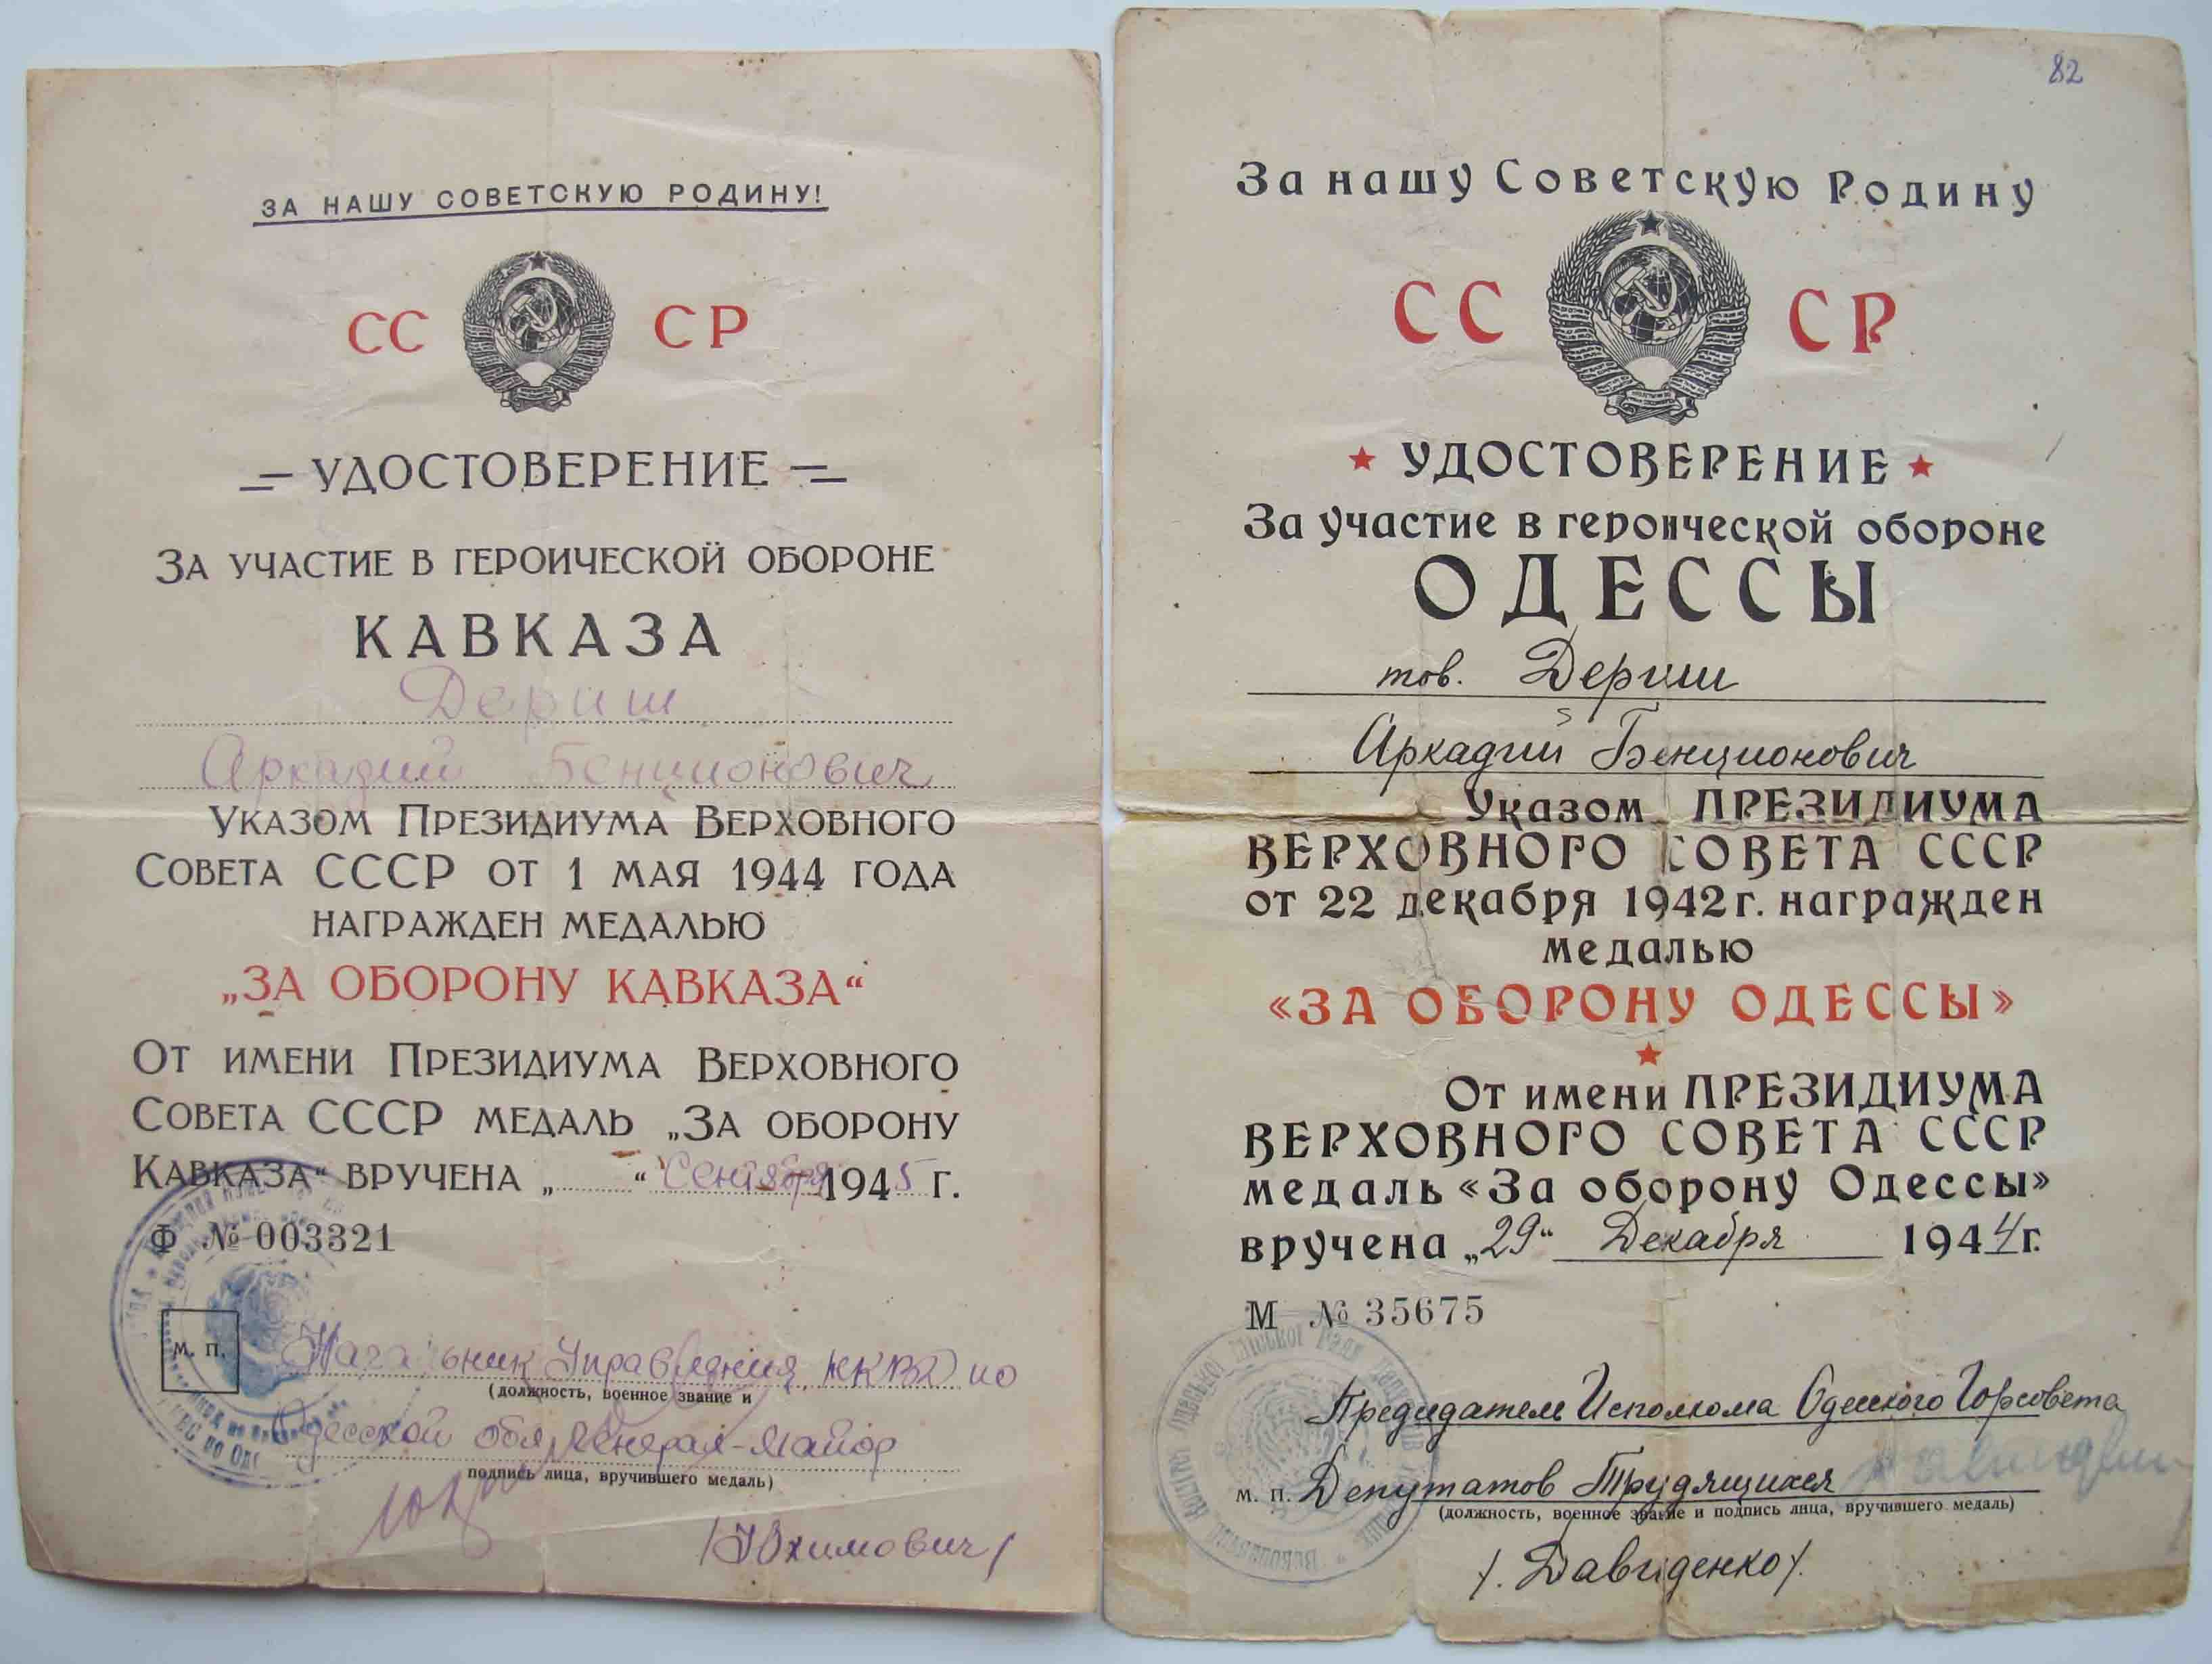 ЗА НАШУ СОВЕТСКУЮ РОДИНУ!
СС СР
УДОСТОВЕРЕНИЕ
ЗА УЧАСТИЕ В ГЕРОИЧЕСКОЙ ОБОРОНЕ
КАВКАЗА
Дериш
Аркадий Бенционович
УКАЗОМ ПРЕЗИДИУМА ВЕРХОВНОГО
СОВЕТА СССР ОТ 1 МАЯ 1944 ГОДА
НАГРАЖДЕН МЕДАЛЬЮ
„ЗА ОБОРОНУ КАВКАЗА“
ОТ ИМЕНИ ПРЕЗИДИУМА ВЕРХОВНОГО
СОВЕТА СССР МЕДАЛЬ „ЗА ОБОРОНУ
КАВКАЗА“ ВРУЧЕНА „ “ Сентября 1945 г.
Ф № 003321
м. п.
Начальник Управления НКВД по
(должность, военное звание и
Одесской обл. Генерал-майор
подпись лица, вручившего медаль)
/Юхимович/
82
За нашу Советскую Родину
СС СР
УДОСТОВЕРЕНИЕ
За участие в героической обороне
ОДЕССЫ
тов. Дериш
Аркадий Бенционович
Указом ПРЕЗИДИУМА
ВЕРХОВНОГО СОВЕТА СССР
от 22 декабря 1942 г. награжден
медалью
«ЗА ОБОРОНУ ОДЕССЫ»
От имени ПРЕЗИДИУМА
ВЕРХОВНОГО СОВЕТА СССР
медаль «За оборону Одессы»
вручена „29“ Декабря 1944 г.
М № 35675
Председатель Исполкома Одесского Горсовета
м. п. Депутатов Трудящихся
(должность, военное звание и подпись лица, вручившего медаль)
/. Давиденко/.